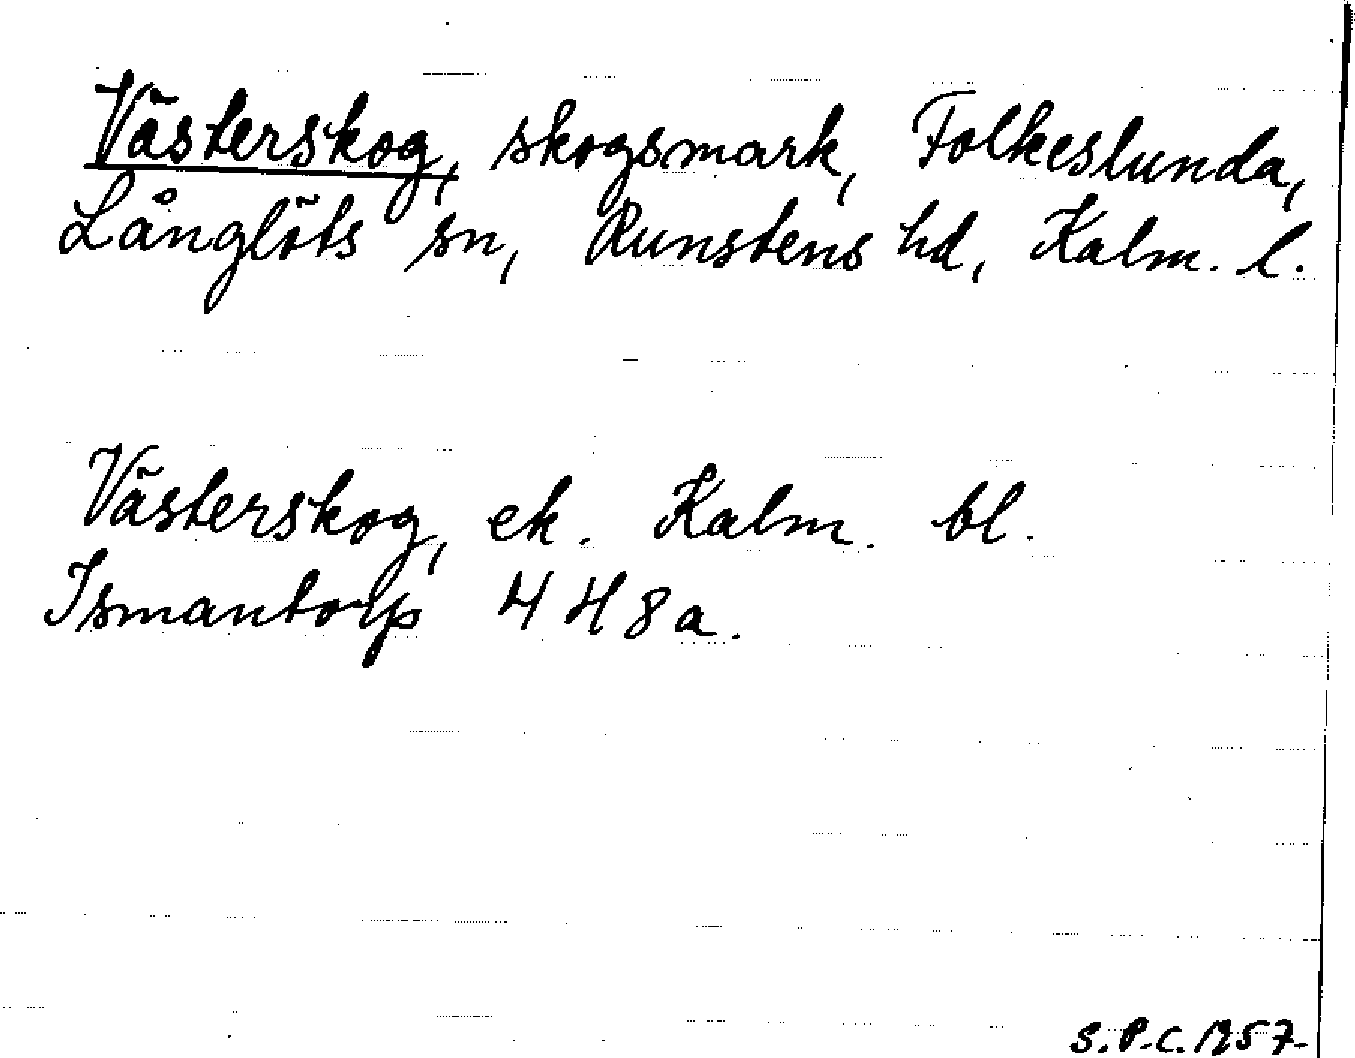 Västerskog, skogsmark, Folkeslunda,
Långlöts sn, Runstens hd, Kalm. l.
Västerskog, ek. Kalm. bl.
Ismantorp 4 H 8 a.
S.P.C. 1957